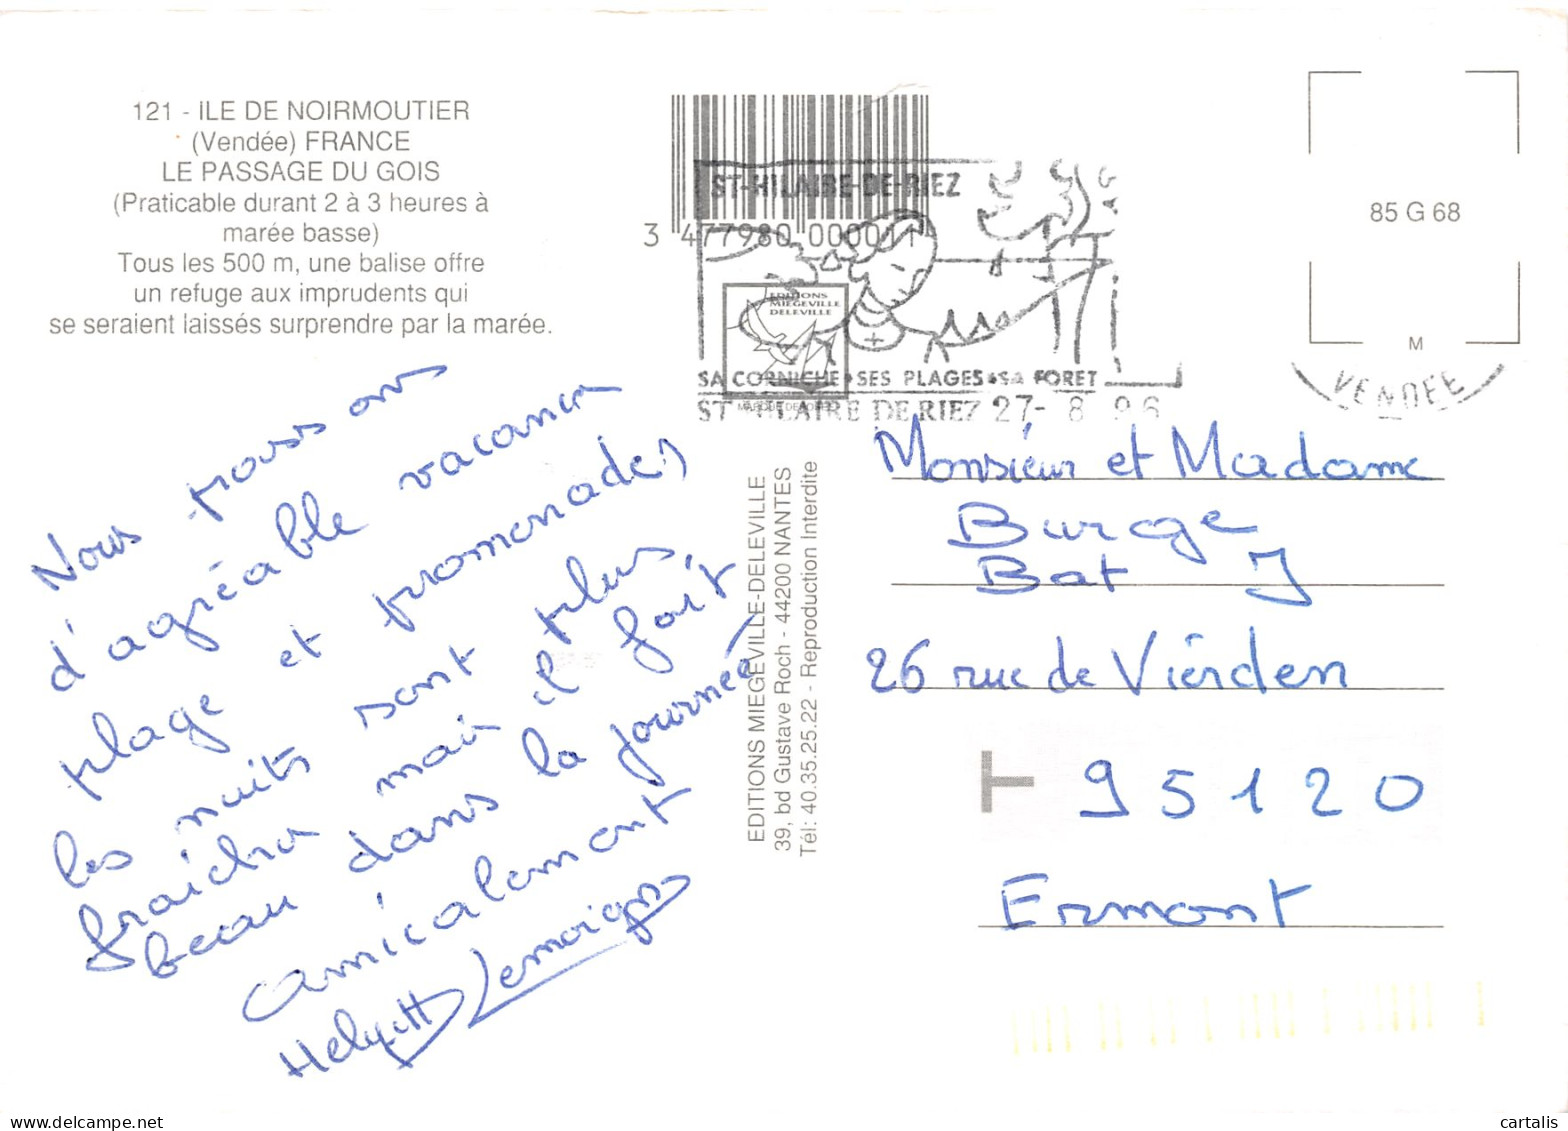 121 - ILE DE NOIRMOUTIER
(Vendée) FRANCE
LE PASSAGE DU GOIS
(Praticable durant 2 à 3 heures à
marée basse)
Tous les 500 m, une balise offre
un refuge aux imprudents qui
se seraient laissés surprendre par la marée.
Nous passons
d'agréable vacances
plage et promenades
les nuits sont plus
fraiches mais il fait
beau dans la journée
amicalement
Helyett Lemoigne
3 477980 000011
ST-HILAIRE-DE-RIEZ
EDITIONS
MIEGEVILLE
DELEVILLE
SA CORNICHE • SES PLAGES • SA FORET
ST HILAIRE DE RIEZ 27- 8 96
85 G 68
M
VENDEE
EDITIONS MIEGEVILLE-DELEVILLE
39, bd Gustave Roch - 44200 NANTES
Tél: 40.35.25.22 - Reproduction Interdite
Monsieur et Madame
Burge
Bat J
26 rue de Vierden
T 95120
Ermont
cartalis